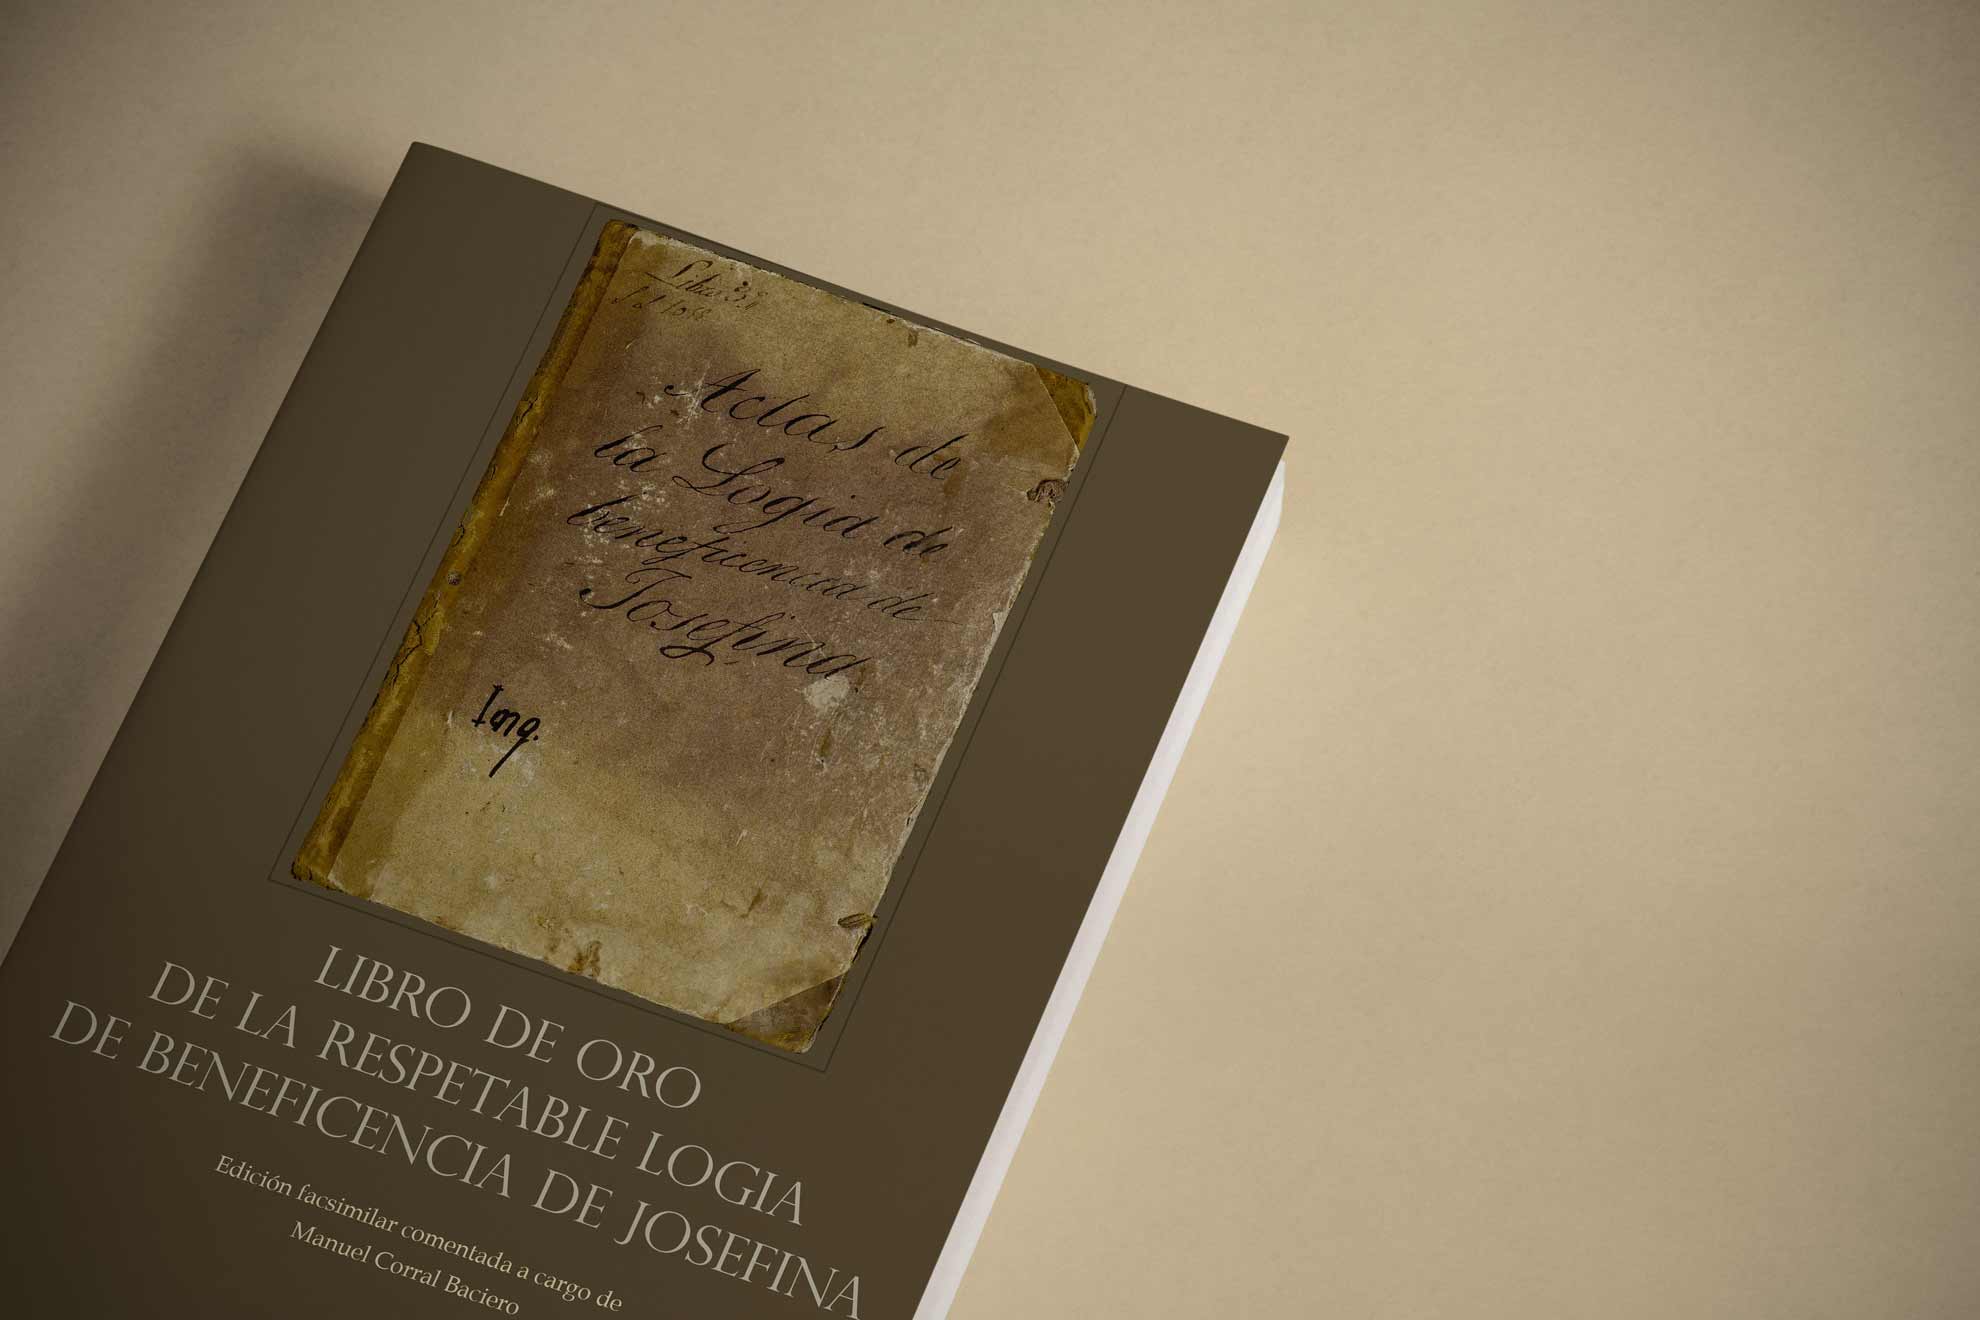 Libro 39
Actas de
la Logia de
beneficencia de
Josefina.
Inq.
LIBRO DE ORO
DE LA RESPETABLE LOGIA
DE BENEFICENCIA DE JOSEFINA
Edición facsimilar comentada a cargo de
Manuel Corral Baciero